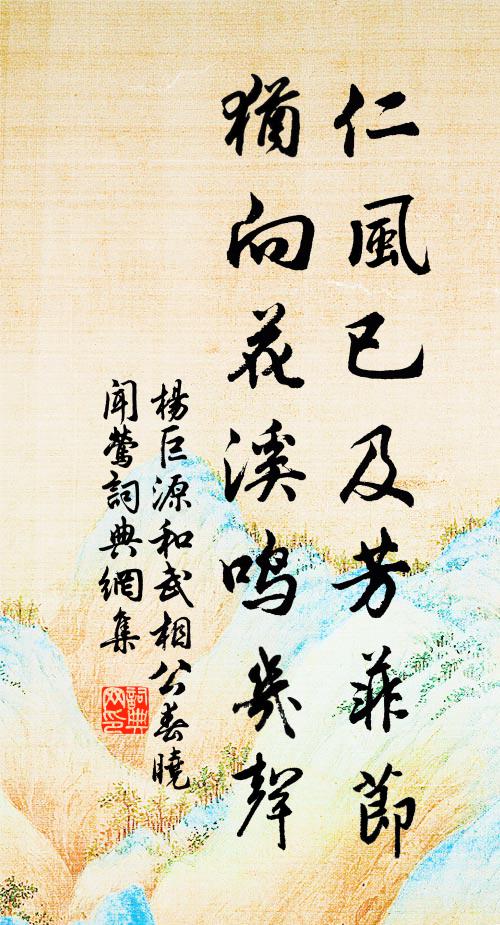 仁風已及芳菲節
猶向花溪鳴幾聲
楊巨源和武相公春曉
聞鶯詞典網集
詞典
网印